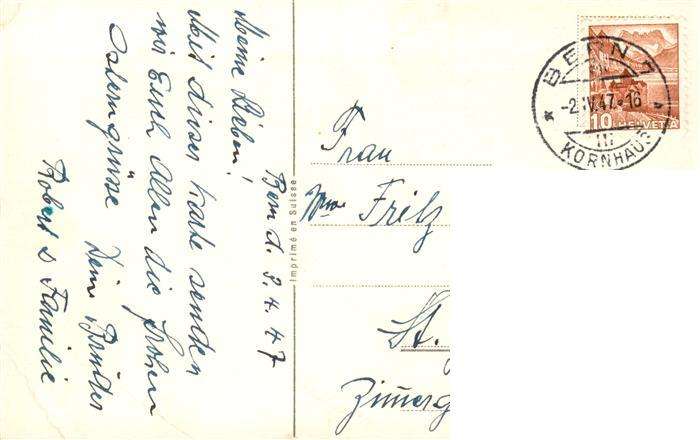 Bern d. 2.4.47
Meine Lieben!
Mit dieser Karte senden
wir Euch Allen die frohen
Ostergrüsse Dein Bruder
Robert & Familie
Imprimé en Suisse
Frau
Wwe Fritz
St.
Zimerg
BERN 7
-2.IV.47.-16
III
KORNHAUS
10 HELVETIA